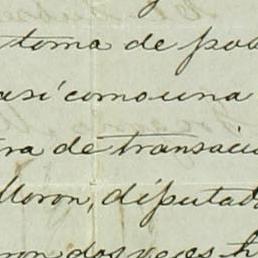 toma de pos
así como una
ra de transacci
Moron, diputad
ron dos veces h